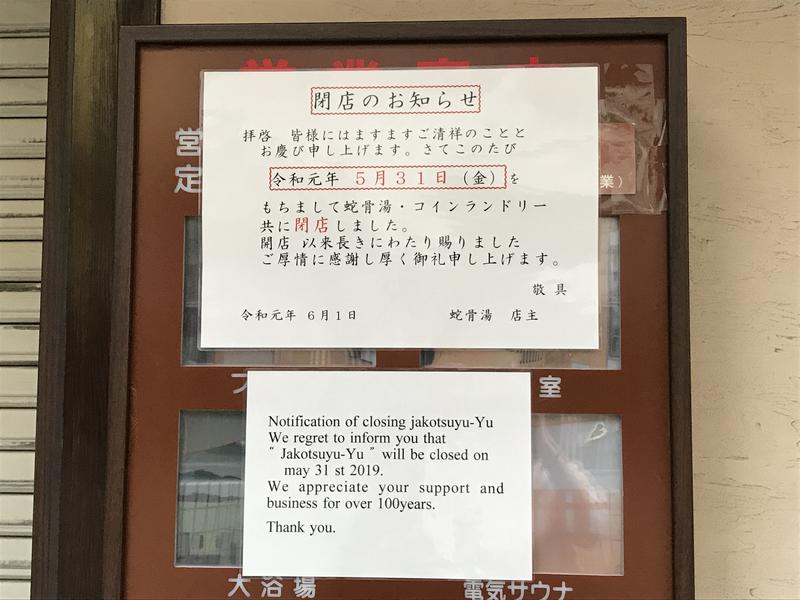 営業案内
営
定
業）
閉店のお知らせ
拝啓　皆様にはますますご清祥のことと
お慶び申し上げます。さてこのたび
令和元年 ５月３１日（金）を
もちまして蛇骨湯・コインランドリー
共に閉店しました。
開店 以来長きにわたり賜りました
ご厚情に感謝し厚く御礼申し上げます。
敬具
令和元年 ６月１日　蛇骨湯 店主
室
Notification of closing jakotsuyu-Yu
We regret to inform you that
“ Jakotsuyu-Yu ” will be closed on
may 31 st 2019.
We appreciate your support and
business for over 100years.
Thank you.
大浴場　電気サウナ